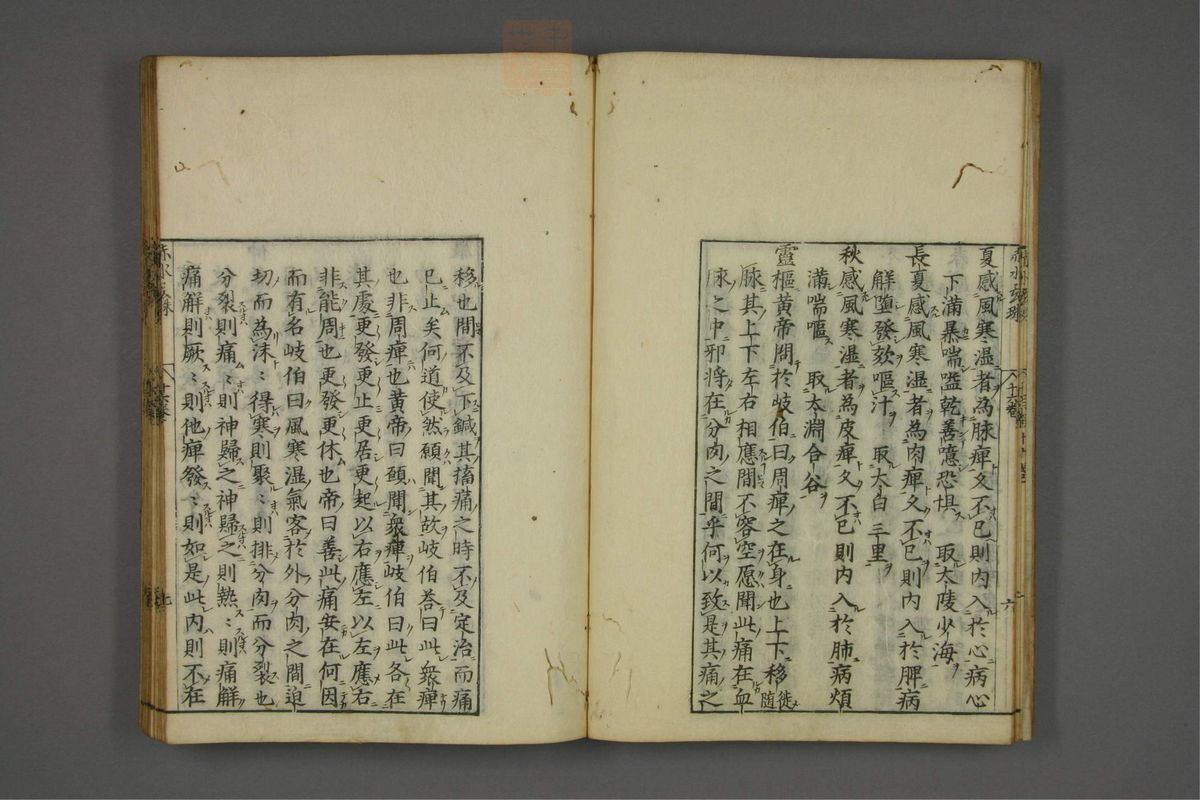 夏感風寒湿者為脉痺久不已則内入於心病心
下満暴喘嗌乾善噫恐惧　取太陵少海
長夏感風寒湿者為肉痺久不已則内入於脾病
解墮發欬嘔汁　取太白三里
秋感風寒湿者為皮痺久不已則内入於肺病煩
満喘嘔　取太淵合谷
靈樞黄帝問於岐伯曰周痺之在身也上下移徙随
脉其上下左右相應間不容空愿聞此痛在血
脉之中邪将在分肉之間乎何以致是其痛之
六
移也間不及下鍼其搐痛之時不及定治而痛
已止矣何道使然願聞其故岐伯荅曰此衆痺
也非周痺也黄帝曰願聞衆痺岐伯曰此各在
其處更發更止更居更起以右應左以左應右
非能周也更發更休也帝曰善此痛安在何因
而有名岐伯曰風寒湿氣客於外分肉之間迫
切而為沫〻得寒則聚〻則排分肉而分裂也
分裂則痛〻則神歸之神歸之則熱〻則痛解
痛解則厥〻則他痺發〻則如是此内則不在
七